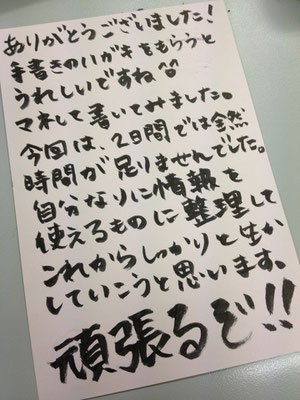 ありがとうございました!
手書きのハガキをもらうと
うれしいですね
マネして書いてみました。
今回は、2日間では全然
時間が足りませんでした。
自分なりに情報を
使えるものに整理して
これからしっかりと生か
していこうと思います。
頑張るぞ!!